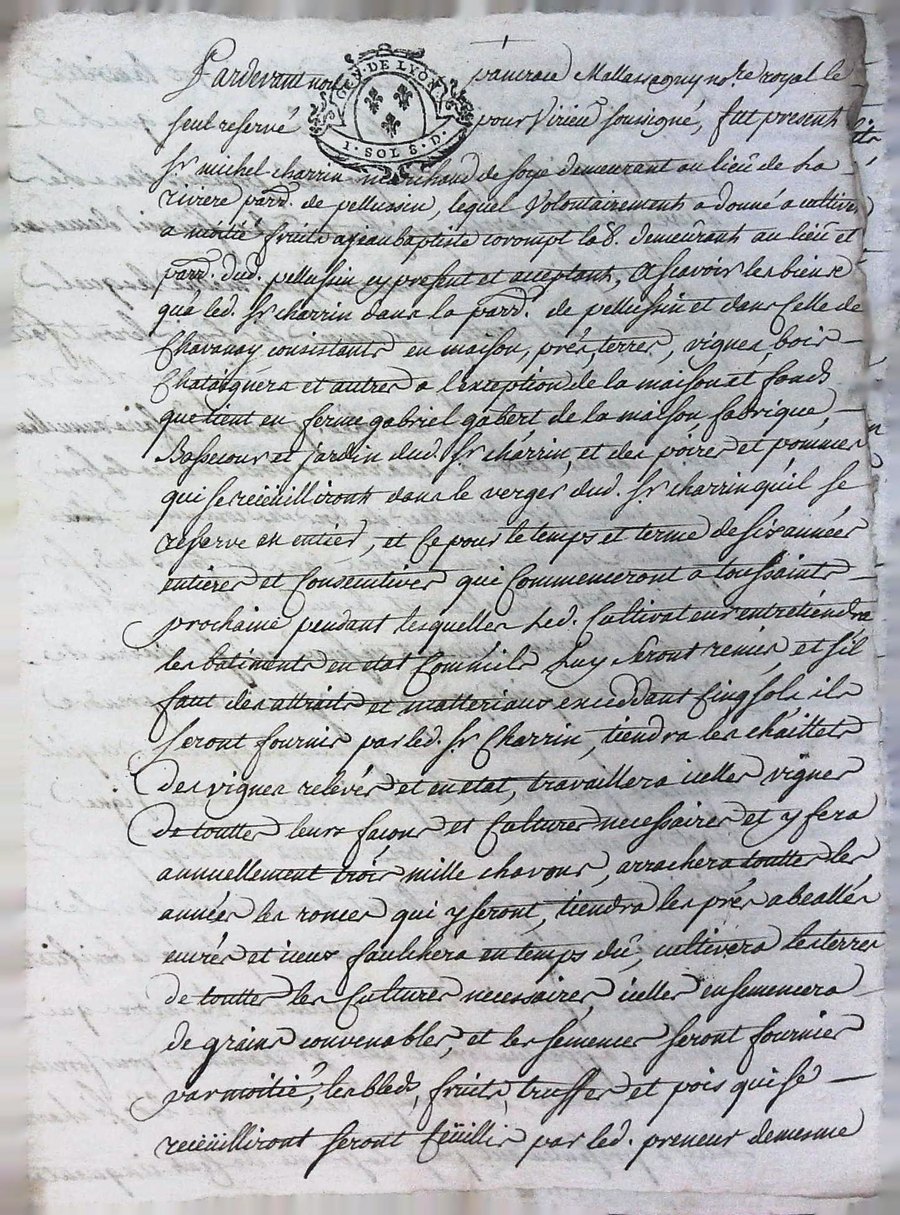 Pardevant not
GEN. DE LYON
1. SOL 8. D.
pancrace Mallassagny no.re royal le
seul reservé pour Virieu sousigné, fut present
Sr michel charrin marchand de soye demeurant au lieu de La
riviere parr. de pellussin, lequel volontairement a donné a cultiver
a moitié fruits a jean baptiste corompt lab. demeurant au lieu et
parr. dud. pellussin cy present et acceptant, Ascavoir les biens
que led. Sr charrin dans la parr. de pellussin et dans Celle de
Chavanay, consistants en maison, prés, terres, vignes, bois
Chataigners et autres a l'exception de la maison et fonds
que tient en ferme gabriel gabert de la maison, fabrique,
Bassecour et jardin dud. Sr charrin, et des poires et pommes
qui se recëuilliront dans le verger dud. Sr charrin qu'il se
reserve en entier, et Ce pour le temps et terme de six années
entieres et Consecutives qui Commenceront a toussaints
prochaine pendant lesquelles Led. Cultivateur entretiendra
les batiments en etat Comm'ils Luy Seront remis, et s'il
faut des attraits et matteriaux exceddant Cinq sols ils
Seront fournis par led. Sr Charrin, tiendra les chaillets
des vignes relevés et en etat, travaillera icelles vignes
de touttes leurs façons et Cultures necessaires et y fera
annuellement trois mille chavons, arrachera touttes les
années les ronces qui y seront, tiendra les prés abealés
curés et iceux fauchera en temps dû, cultivera les terres
de touttes les Cultures necessaires, icelles ensemencera
de grains convenables, et les semences seront fournies
par moitié, les bleds, fruits, truffes et pois qui se
recëuilliront seront Cüillis par led. preneur de mesme